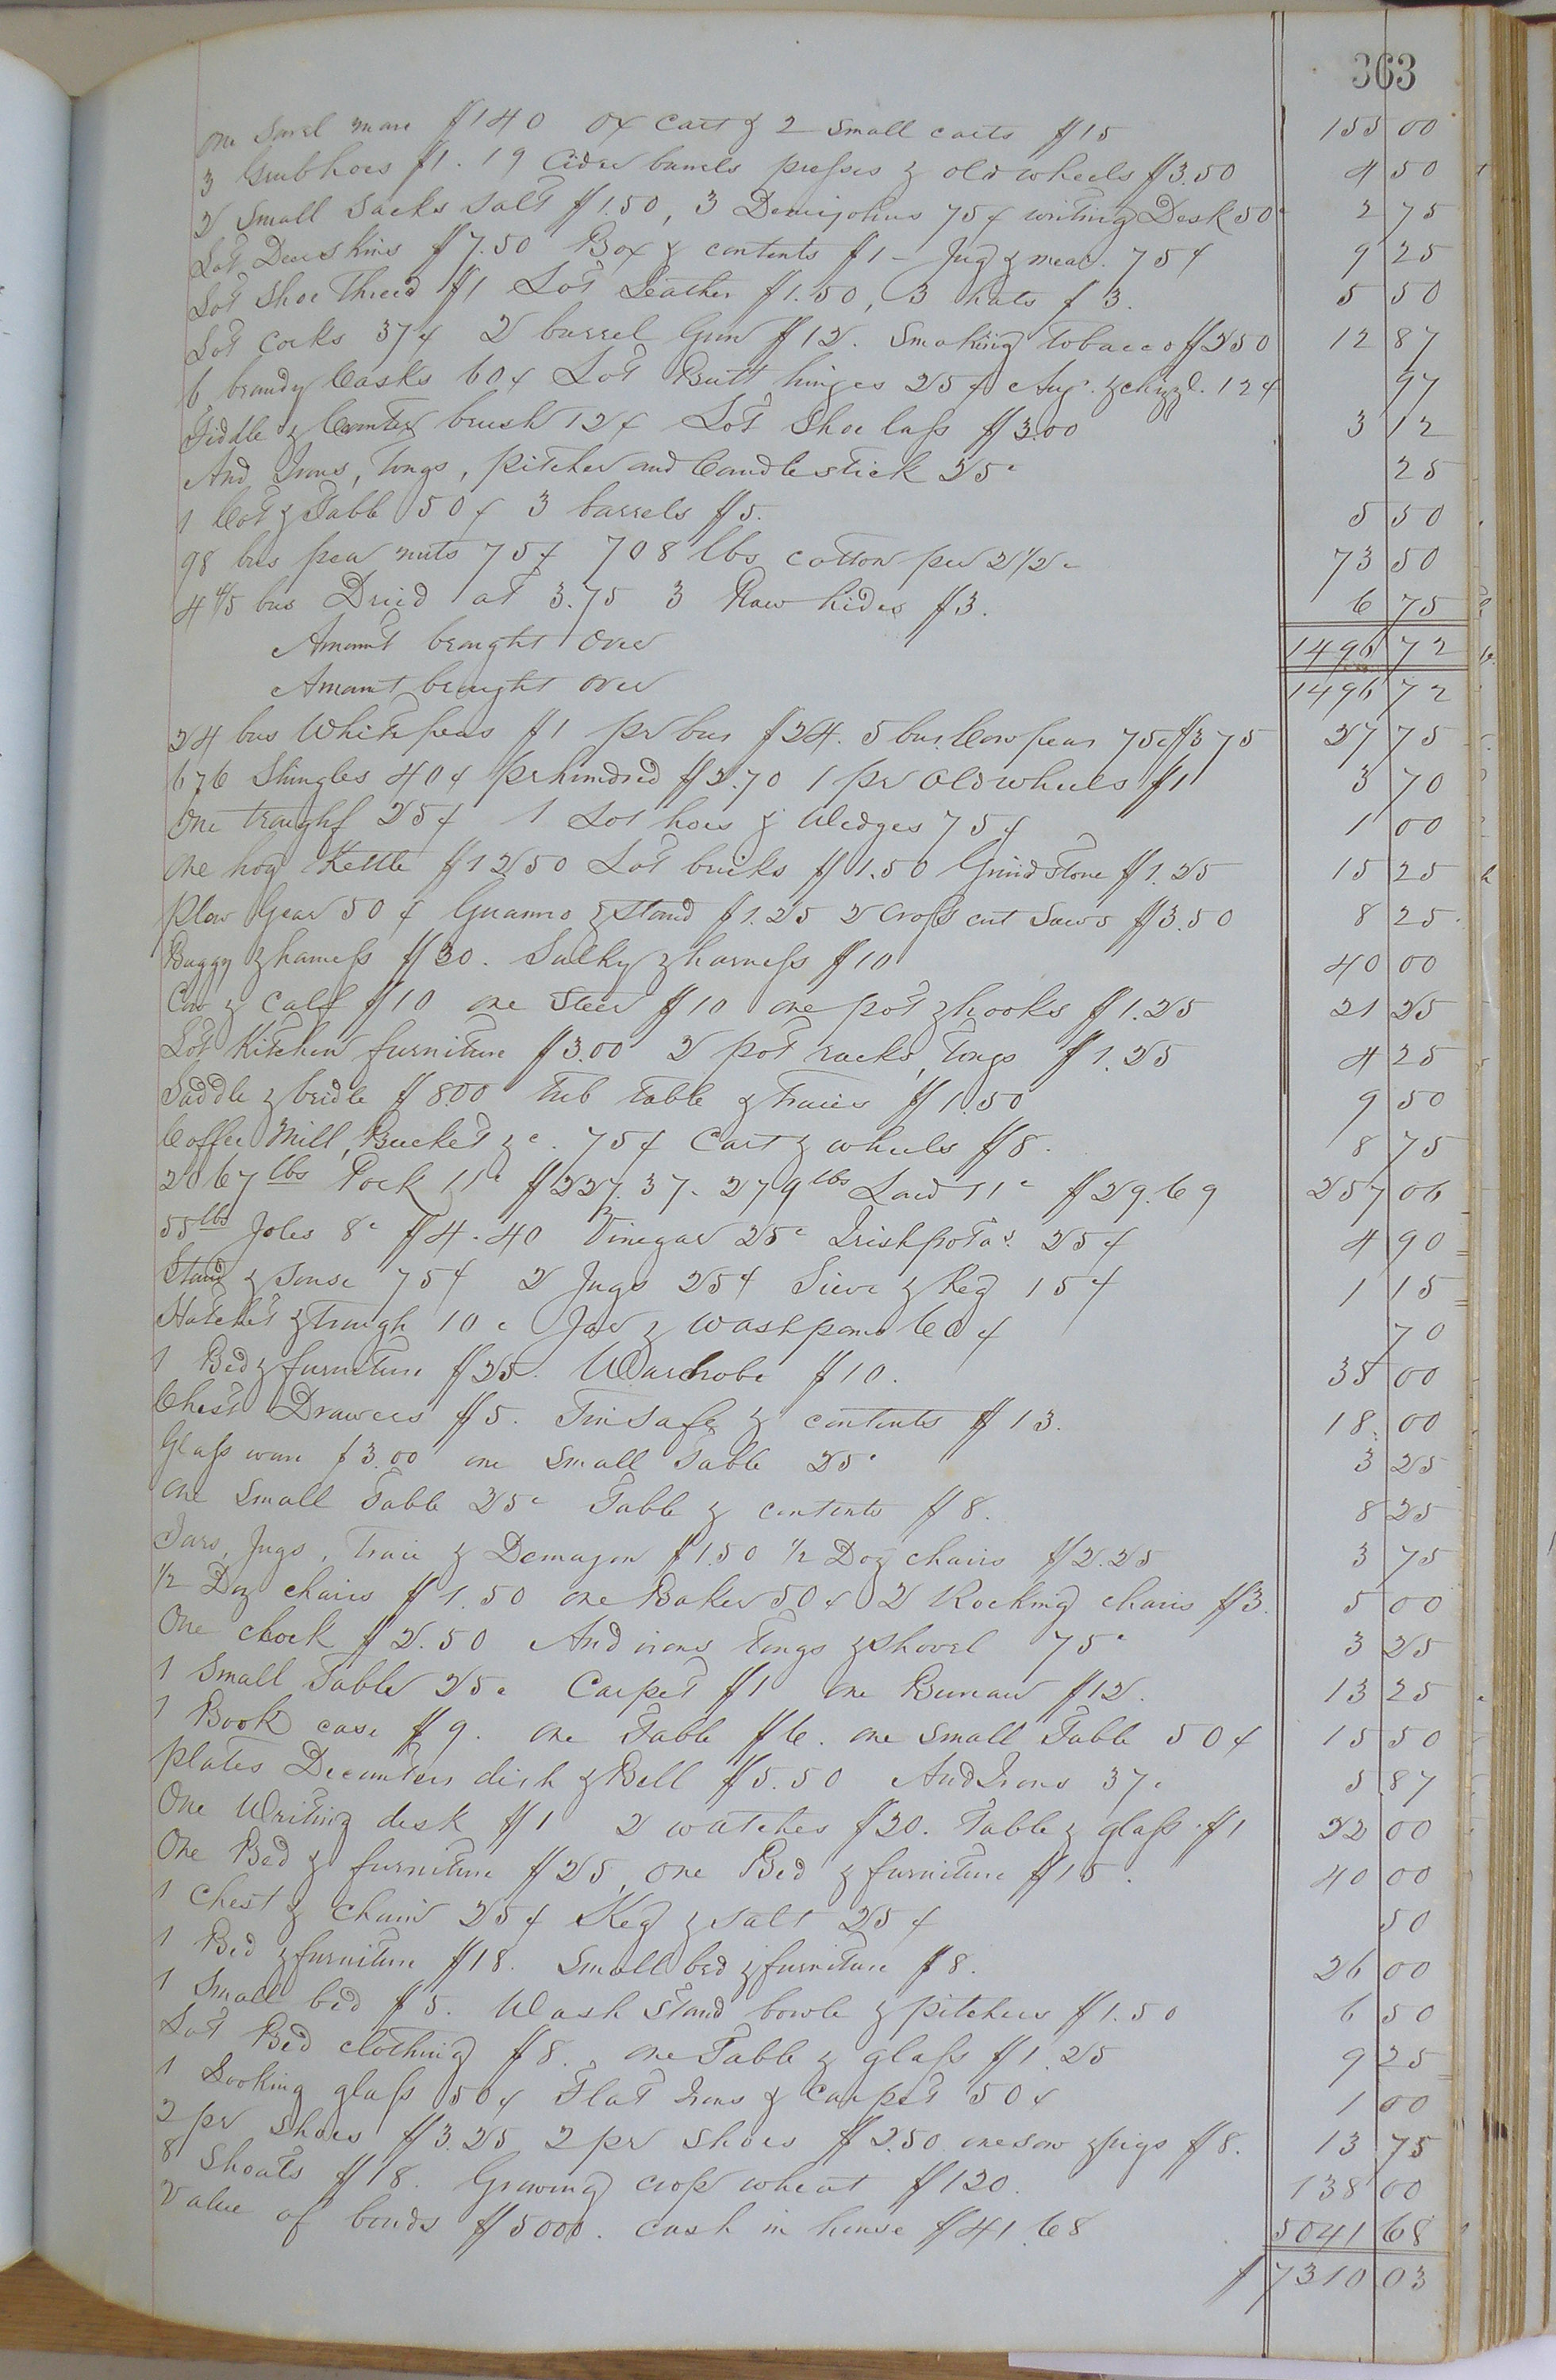 363
One Sorel mare $140 ox cart & 2 small carts $15 155 00
3 Grubhoes $1. 19 Cider barrels presses & old wheels $3.50 4 50
2 Small Sacks Salt $1.50, 3 Demijohns 75¢ writing Desk 50c 2 75
Lot Deerskins $7.50 Box & contents $1 - Jug & mear. 75¢ 9 25
Lot Shoe Thread $1 Lot Leather $1.50, 3 hats $3. 5 50
Lot corks 37¢ 2 barrel Gun $12. Smoking tobacco $2 50 12 87
6 brandy Casks 60¢ Lot Butt hinges 25¢ Aug. & chizzl. 12¢ 97
Fiddle & Counter brush 12¢ Lot Shoe lass $3.00 3 12
And Irons, Tongs, pitcher and Candlestick 25c 25
1 Cot & Table 50¢ 3 barrels $5. 5 50
98 bus pea nuts 75¢ 708 lbs cotton per 2 1/2 c 73 50
4 4/5 bus Dried at 3.75 3 Raw hides $3. 6 75
Amount brought Over 1496 72
Amount brought over 1496 72
24 bus White peas $1 pr bus $24. 5 bus. Cow peas 75c $3 75 27 75
676 Shingles 40¢ pr hundred $2.70 1 pr old wheels $1 3 70
One trough 25¢ 1 Lot hoes & Wedges 75¢ 1 00
One hog Kettle $12 50 Lot bricks $1.50 Grind Stone $1.25 15 25
Plow Gear 50¢ Guanno & Stand $1.25 2 Cross cut Saws $3.50 8 25
Buggy & harness $30. Sulky & harness $10 40 00
Cow & calf $10 one Steer $10 one pot & hooks $1.25 21 25
Lot Kitchen furniture $3.00 2 pot racks, Tongs $1.25 4 25
Saddle & bridle $8.00 tub table & traies $1.50 9 50
Coffee Mill, Bucket &c. 75¢ Cart & wheels $8. 8 75
2067 lbs Pork 11c $227.37. 279 lbs Lard 11c $29.69 257 06
55 lbs Joles 8c $4.40 Vinegar 25c Irish pota's. 25¢ 4 90
Stand & Souse 75¢ 2 Jugs 25¢ Sieve & Keg 15¢ 1 15
Hatchet & trough 10c Jar & wash pans 60¢ 70
1 Bed & furniture $25. Wardrobe $10. 35 00
Chest Drawers $5. Tin Safe & contents $13. 18 00
Glass ware $3.00 one Small Table 25c 3 25
One Small Table 25c Table & contents $8. 8 25
Jars, Jugs, Traie & Demajon $1.50 1/2 Doz chairs $2.25 3 75
1/2 Doz chairs $1.50 one Baker 50¢ 2 Rocking chairs $3. 5 00
One clock $2.50 And irons Tongs & Shovel 75c 3 25
1 Small Table 25c Carpet $1 one Bureau $12. 13 25
1 Book case $9. one Table $6. one small Table 50¢ 15 50
Plates Decanters dish & Bell $5.50 And Irons 37c 5 87
One Writing desk $1 2 watches $20. Table & glass $1 22 00
One Bed & furniture $25, one Bed & furniture $15. 40 00
1 Chest & chair 25¢ Keg & salt 25¢ 50
1 Bed & furniture $18. Small bed & furniture $8. 26 00
1 Small bed $5. Wash Stand bowle & pitchers $1.50 6 50
Lot Bed clothing $8. one Table & glass $1.25 9 25
1 Looking glass 50¢ Flat Irons & Carpet 50¢ 1 00
2 pr Shoes $3.25 2 pr Shoes $2.50 one sow & pigs $8. 13 75
8 Shoats $18. Growing crop wheat $120. 138 00
Value of bonds $5000. cash in house $41.68 5041 68
$7310 03